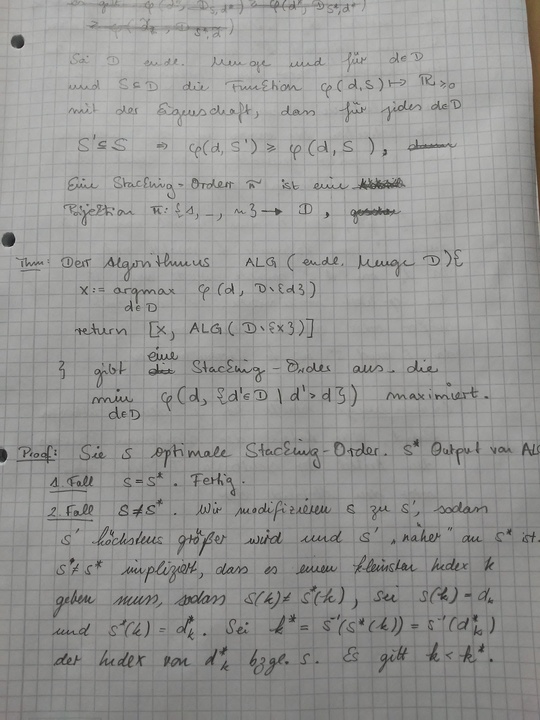 Sei D endl. Menge und für d∈D
und S⊆D die Funktion φ(d,S) ↦ ℝ≥0
mit der Eigenschaft, dass für jedes d∈D
S'⊆S ⇒ φ(d,S') ⩾ φ(d,S),
Eine Stacking-Order π ist eine
π: {1,_,n} → D,
Thm: Der Algorithmus ALG(endl. Menge D){
x := argmax φ(d, D∖{d})
d∈D
return [x, ALG(D∖{x})]
} gibt eine Stacking-Order aus. die
min φ(d, {d'∈D | d'>d}) maximiert.
d∈D
Proof: S optimale Stacking-Order. S* Output von ALG
1. Fall S=S*. Fertig.
2. Fall S≠S*. Wir modifizieren S zu S', sodass
S' höchstens größer wird und S' „näher" an S* ist.
S≠S* impliziert, dass es einen kleinsten Index k
geben muss, sodass S(k)≠S*(k), sei S(k)=dₖ
und S*(k)=dₖ*. Sei k*=S⁻¹(S*(k))=S⁻¹(dₖ*)
der Index von dₖ* bzgl. S. Es gilt k<k*.